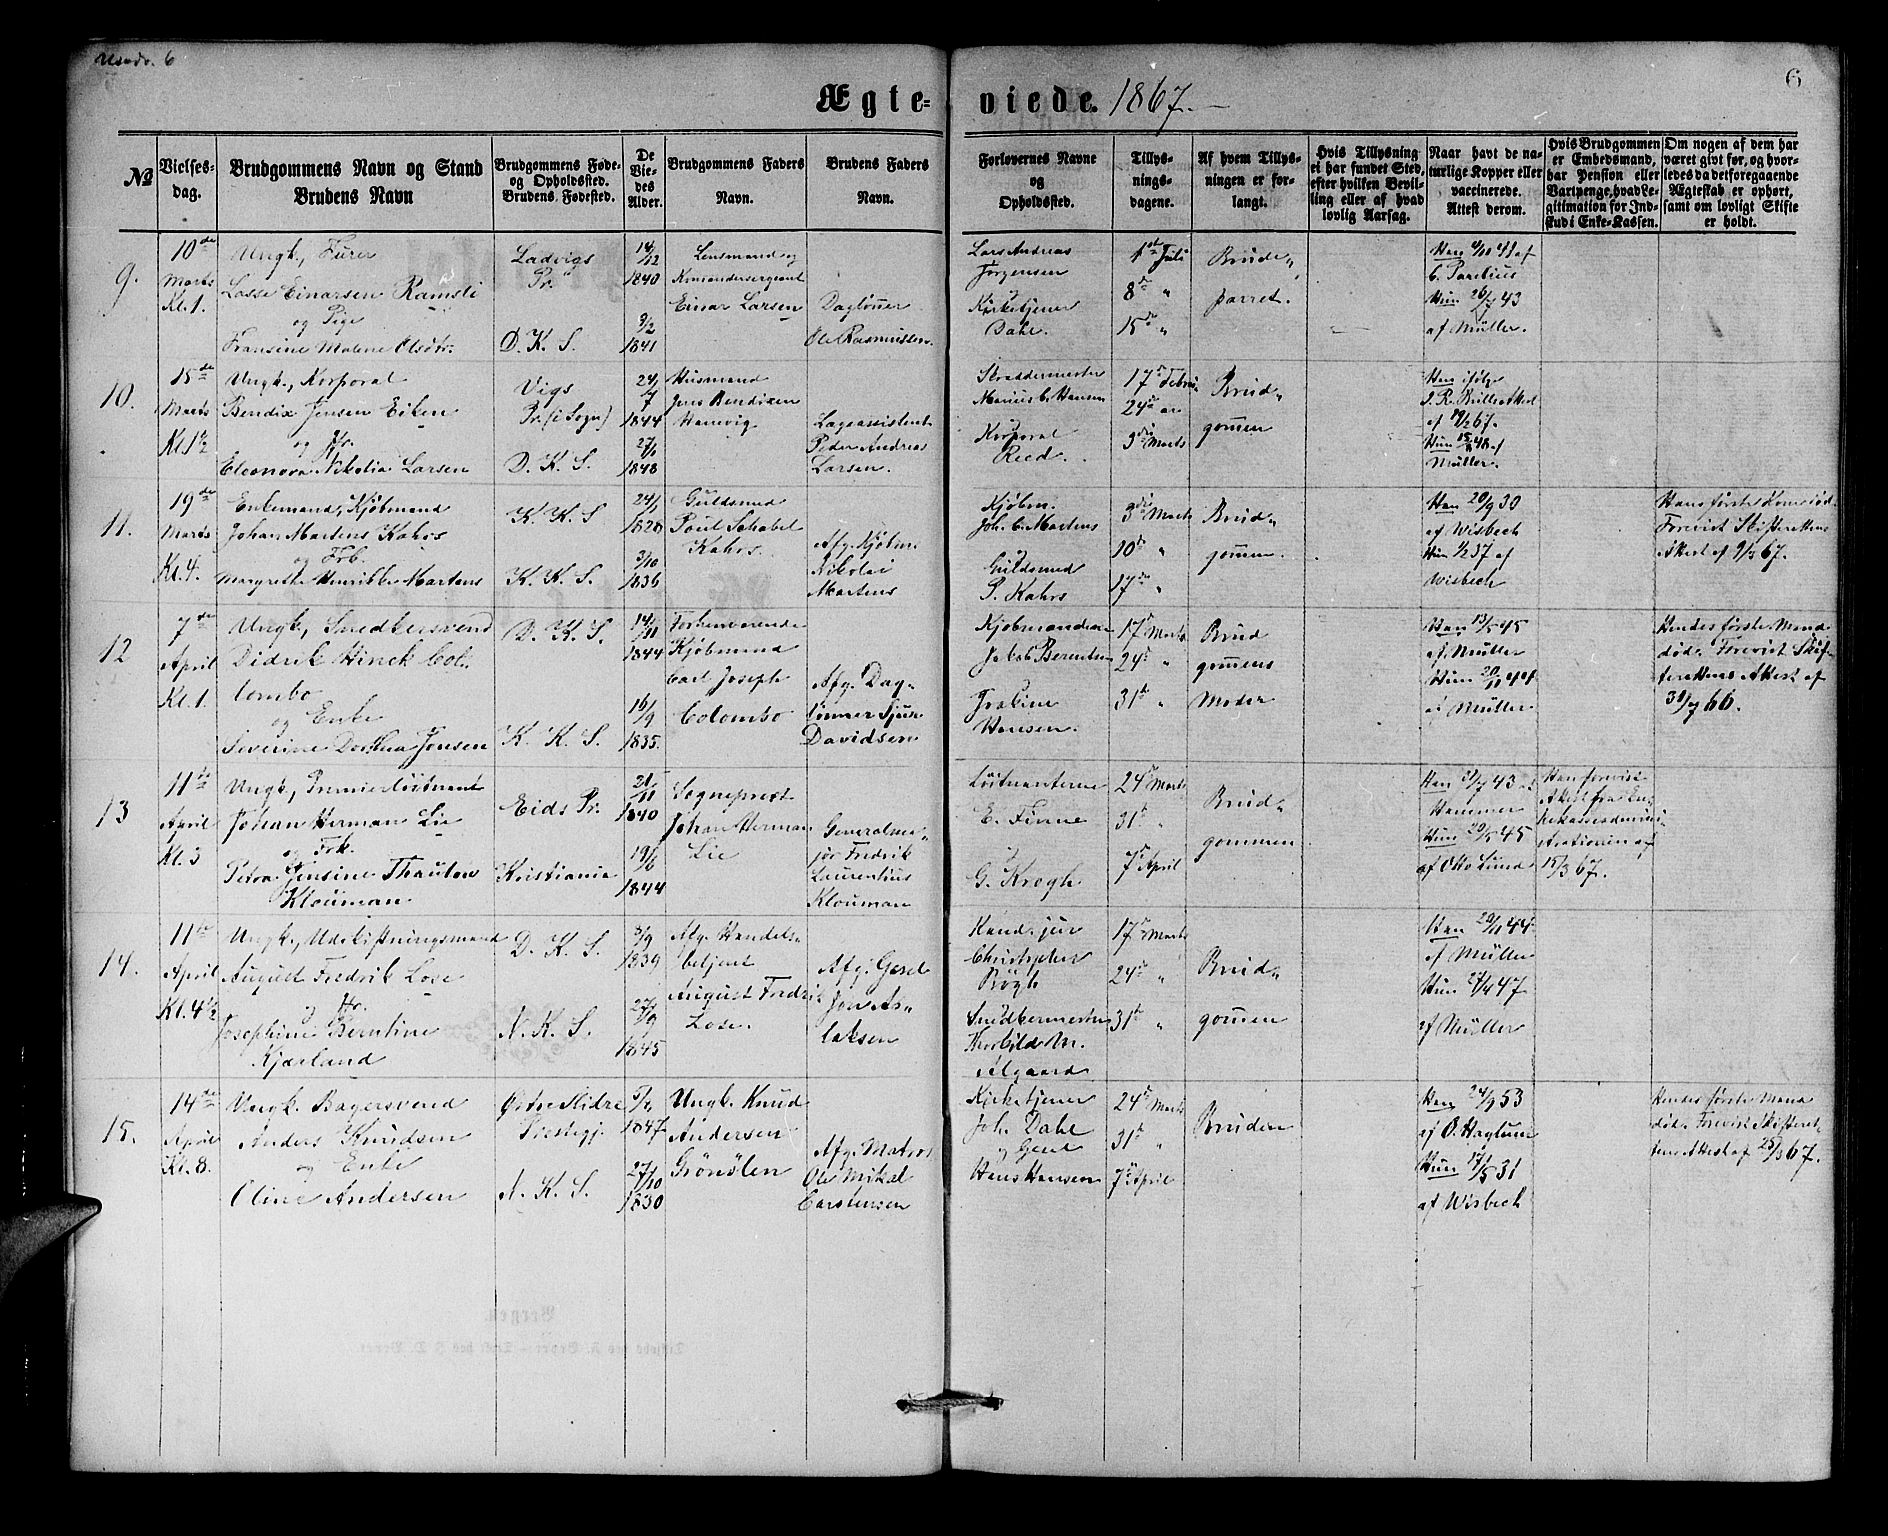 6
Ægte-
viede. 1867.
№
Vielses-
dag.
Brudgommens Navn og Stand
Brudens Navn
Brudgommens Føde-
og Opholdssted.
Brudens Fødested.
De
Vie-
des
Alder.
Brudgommens Faders
Navn.
Brudens Faders
Navn.
Forlovernes Navne
og
Opholdssted.
Tillys-
nings-
dagene.
Af hvem Tillys-
ningen er for-
langt.
Hvis Tillysning
ei har fundet Sted,
efter hvilken Bevil-
ling eller af hvad
lovlig Aarsag.
Naar havt de na-
turlige Kopper eller
vaccinerede.
Attest derom.
Hvis Brudgommen
er Embedsmand,
har Pension eller
Vartpenge, hvad Le-
gitimation for Ind-
skud i Enke-Kassen.
Om nogen af dem har
været givt før, og hvor-
ledes da det foregaaende
Ægteskab er ophørt,
samt om lovligt Skifte
er holdt.
9.
10de
Marts
Kl. 1.
Ungk., Furer
Lasse Einarsen Ramsli
og Pige
Fransine Malene Olsdtr.
Ladvigs
Pr.
D. K. S.
14/12
1840
9/2
1841
Lensmand og
Einar Larsen
Dagløner
Ole Rasmussen.
Lars Andreas
Jørgensen
Kirketjener
Dahe.
1ste Juli
8de "
15de "
Brude-
parret.
Han 4/11 41 af
C. Parelius
Hun 26/7 43
af Müller.
10.
15de
Marts
Kl. 1½
Ungk., Korporal
Bendix Jensen Eiken
og Fr.
Eleonora Nikolia Larsen
Vigs
Pr. (i Sogn)
D. K. S.
24/7
1844
27/1
1848
Husmand
Jens Bendixen
Hamvig
Lageassistent
Peder Andreas
Larsen.
Skræddermester
Marius C. Hansen
Korporal
Reed.
17de Febru-
24de ar
3die Marts
Brud-
gommen
Han ifølge
af 19/2 67.
Hun 15/8 48 af
Müller.
11.
19de
Marts
Kl. 4.
Enkemand, Kjøbmand
Johan Martens Kahrs
og Frk.
Margrethe Henrikke Martens
K. K. S
K. K. S.
24/1
1828
3/10
1836
Guldsmed
Poul Schabel
Kahrs.
Afg. Kjøbm.
Nikolai
Martens
Kjøbm.
Joh. C. Martens
Guldsmed
P. Kahrs
3die Marts
10de "
17de "
Brud-
gommen.
Han 20/9 30
af Wisbech
Hun 1/2 37 af
Wisbech
Hans første Kone død.
Forevist Skifterettens
Attest af 9/3 67.
12
7de
April
Kl. 1.
Ungk., Snedkersvend
Didrik Hinck Col-
lombo
og Enke
Severine Dorthea Jensen
D. K. S.
K. K. S.
14/11
1844
16/9
1835.
Forhenværende
Kjøbmand
Carl Joseph
Colombo
Afg. Dag-
lønner Sjur
Davidsen
Kjøbmændene
Jakob Berentsen
Hansen.
17de Marts
24de "
31te "
Brud
gomens
Moder
Han 13/5 45
af Müller
Hun 20/11 44
af Müller
Hendes første Mand
død. Forevist Skif-
terettens Attest af
31/7 66.
13
11te
April
Kl. 3
Ungk., Premielieutnant
Johan Herman Lie
og Frk.
Petra Jensine Thaulow
Klouman
Eids Pr.
Kristiania
21/11
1840
19/6
1844
Sogneprest
Johan Herman
Lie
Generalma-
jor Fredrik
Laurentius
Klouman
Løitnanterne
E. Finne
G. Krogh
24de Marts
31te "
7de April
Brud-
gommen
Han 31/7 43 af
Hammer
Hun 20/5 45
af Otto Lund
Han forevist
Attest fra En-
kekassesadmini-
strationen af
15/3 67.
14.
11te
April
Kl. 4½
Ungk., Udskiftningsmand
August Fredrik Lose
og Fr.
Josephine Berntine
Kjærland
D. K. S.
N. K. S.
8/9
1839
27/9
1845
Afg. Handels-
betjent
August Fredrik
Lose.
Afg. Gesel
Jon As-
laksen
Kand. jur
Christopher
Bøgh
Snedkermester
Thorkild M.
Algaard
17de Marts
24de "
31te "
Brud-
gommen
Han 20/11 44
af Müller
Hun 27/4 47
af Müller
15.
14de
April
Kl. 8.
Ungk. Bagersvend
Anders Knudsen
og Enke
Oline Andersen
Østre Slidre
Prestegj.
N. K. S.
1847
27/10
1830
Ungk. Knud
Andersen
Grönølen
Afg. Matros
Ole Mikal
Carstensen
Kirketjener
Joh. Dahe
og Gent
Hans Hansen
24de Marts
31te "
7de April
Bruden
Han 24/9 53
af O. Haglum
Hun 17/5 31
af Wisbech
Hendes første Mand
død. Forevist Skifteret-
tens Attest af 25/3 67.